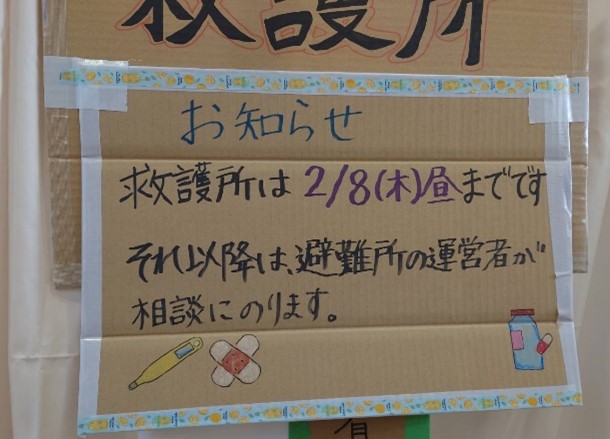 救護所
お知らせ
救護所は 2/8(木)昼までです
それ以降は、避難所の運営者が
相談にのります。
有